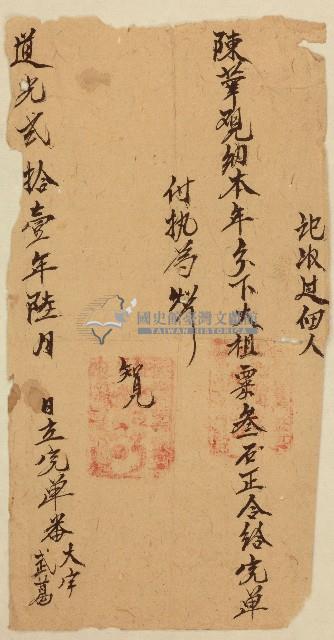 記收過個人
陳華覌納本年分下大租粟叁石正合給完單
付执為炤
知見
道光貳拾壹年陸月　日立完單番大宇武葛
國史館臺灣文獻館
TAIWAN HISTORICA